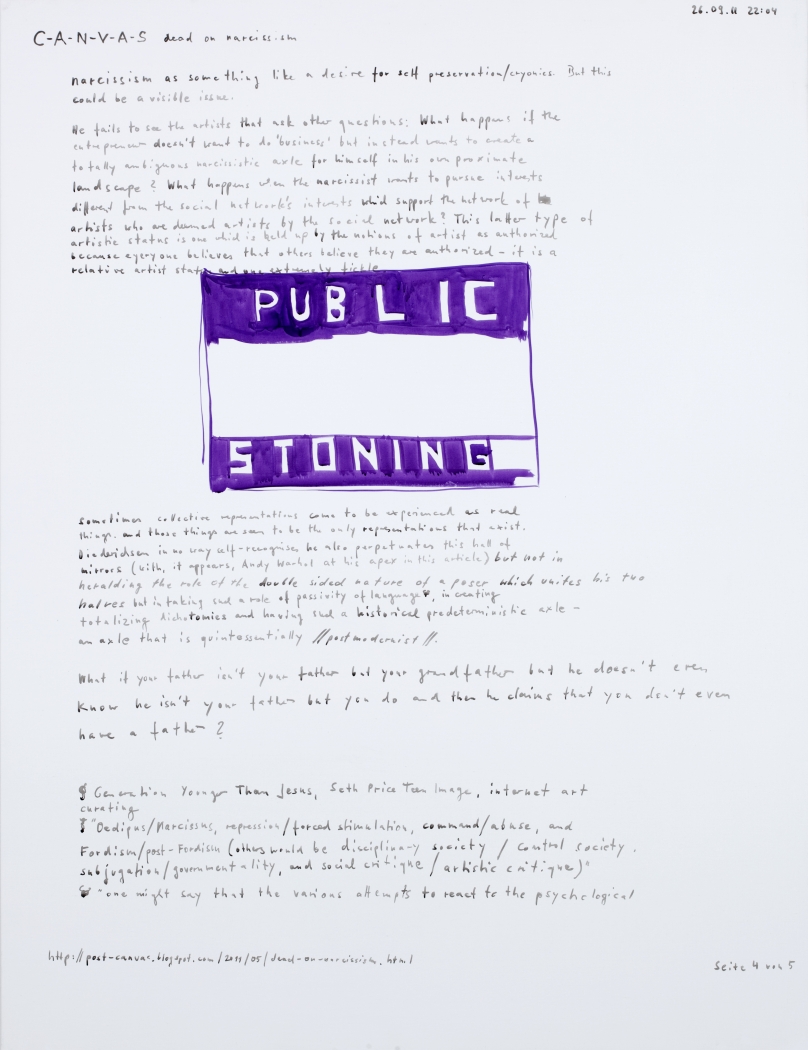 26.09.11 22:04
C-A-N-V-A-S dead on narcissism
narcissism as something like a desire for self preservation/cryonics. But this
could be a visible issue.
He fails to see the artists that ask other questions: What happens if the
entrepreneur doesn't want to do 'business' but instead wants to create a
totally ambiguous narcissistic axle for himself in his own proximate
landscape? What happens when the narcissist wants to pursue interests
different from the social network's interests which support the network of
artists who are deemed artists by the social network? This latter type of
artistic status is one which is held up by the notions of artist as authorized
because everyone believes that others believe they are authorized - it is a
relative artist and one extremely fickle
PUBLIC
STONING
sometimes collective representations come to be experienced as real
things. and those things are seen to be the only representations that exist.
Diederichsen in no way self-recognises he also perpetuates this hall of
mirrors (with, it appears, Andy Warhol at his apex in this article) but not in
heralding the role of the double sided nature of a poser which unites his two
halves but in taking such a role of passivity of language, in creating
totalizing dichotomies and having such a historical predeterministic axle -
an axle that is quintessentially //postmodernist//.
What if your father isn't your father but your grandfather but he doesn't even
know he isn't your father but you do and then he claims that you don't even
have a father?
Generation Younger Than Jesus, Seth Price Teen Image, internet art
curating
"Oedipus/Narcissus, repression/forced stimulation, command/abuse, and
Fordism/post-Fordism (others would be disciplinary society / control society,
subjugation/governmentality, and social critique/artistic critique)"
"one might say that the various attempts to react to the psychological
http://post-canvas.blogspot.com/2011/05/dead-on-narcissism.html
Seite 4 von 5